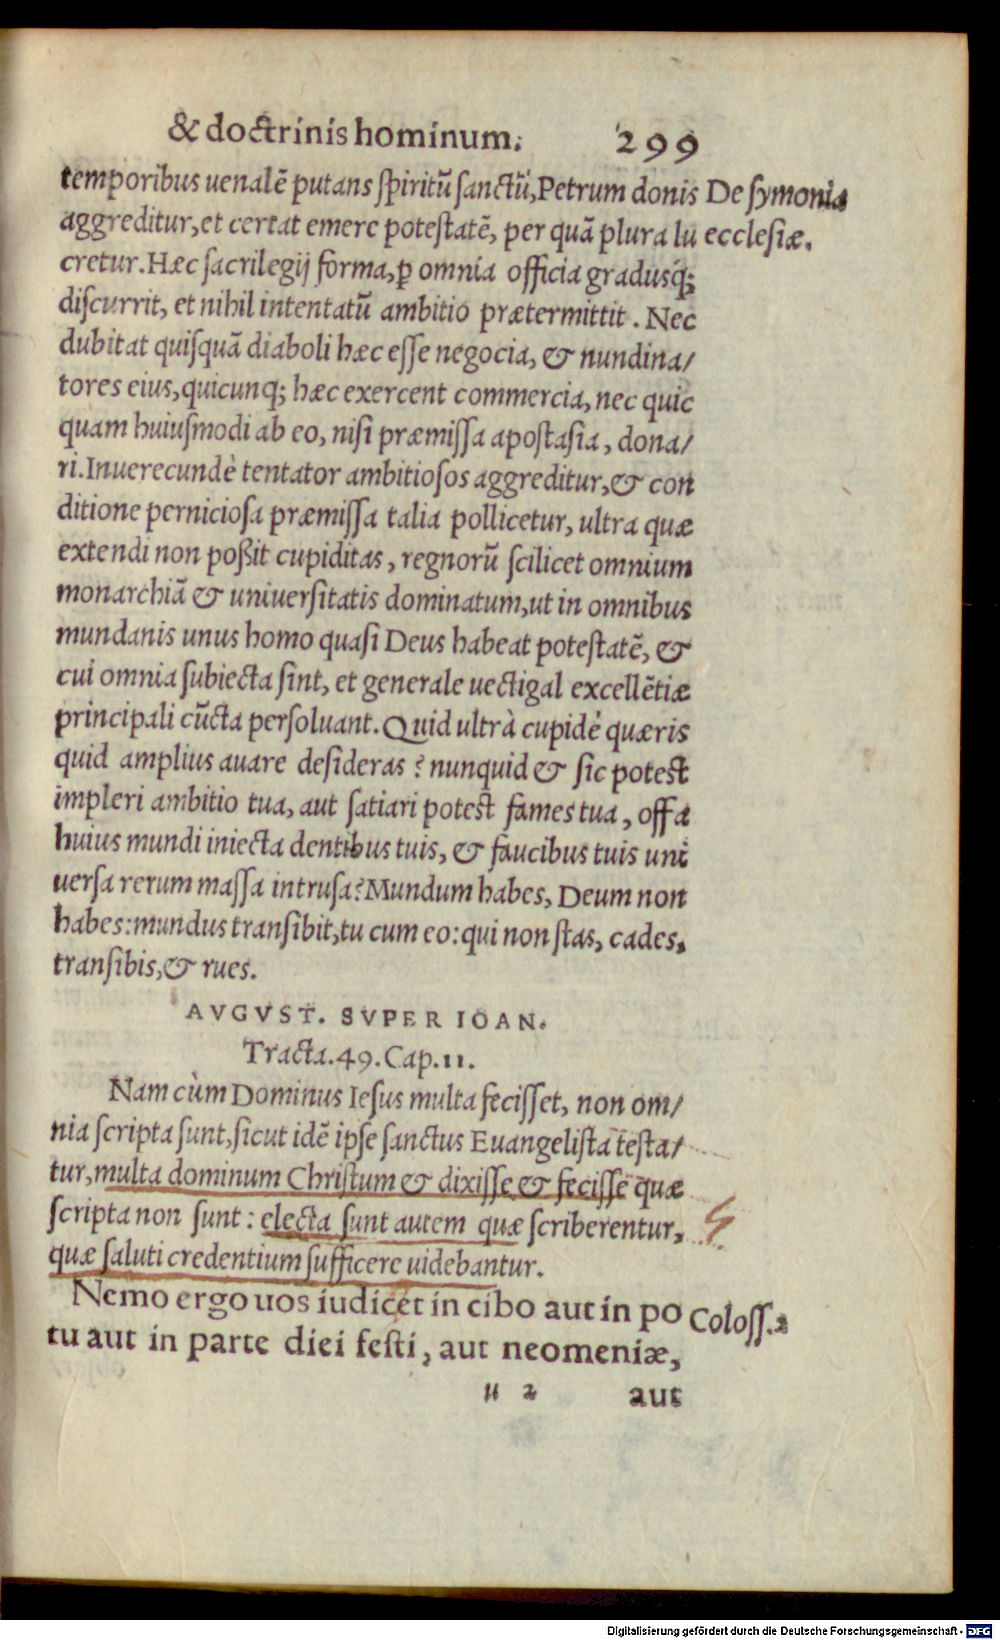 & doctrinis hominum. 299
temporibus uenalē putans ſpiritū ſanctū, Petrum donis De ſymonia
aggreditur, et certat emere poteſtatē, per quā plura lu eccleſiæ.
cretur. Hæc ſacrilegij forma, ꝑ omnia officia gradusq́;
diſcurrit, et nihil intentatū ambitio prætermittit. Nec
dubitat quiſquā diaboli hæc eſſe negocia, & nundina/
tores eius, quicunq; hæc exercent commercia, nec quic
quam huiuſmodi ab eo, niſi præmiſſa apoſtaſia, dona/
ri. Inuerecundè tentator ambitioſos aggreditur, & con
ditione pernicioſa præmiſſa talia pollicetur, ultra quæ
extendi non poßit cupiditas, regnorū ſcilicet omnium
monarchiā & uniuerſitatis dominatum, ut in omnibus
mundanis unus homo quaſi Deus habeat poteſtatē, &
cui omnia ſubiecta ſint, et generale uectigal excellētiæ
principali cūcta perſoluant. Quid ultrà cupidè quæris
quid amplius auare deſideras? nunquid & ſic poteſt
impleri ambitio tua, aut ſatiari poteſt fames tua, offa
huius mundi iniecta dentibus tuis, & faucibus tuis uni
uerſa rerum maſſa intruſa? Mundum habes, Deum non
habes: mundus tranſibit, tu cum eo: qui non ſtas, cades,
tranſibis, & rues.
AVGVST. SVPER IOAN.
Tracta. 49. Cap. 11.
Nam cùm Dominus Ieſus multa feciſſet, non om/
nia ſcripta ſunt, ſicut idē ipſe ſanctus Euangeliſta teſta/
tur, multa dominum Chriſtum & dixiſſe & feciſſe quæ
ſcripta non ſunt: electa ſunt autem quæ ſcriberentur,
quæ ſaluti credentium ſufficere uidebantur.
Nemo ergo uos iudicet in cibo aut in po Coloſſ. 2
tu aut in parte diei feſti, aut neomeniæ,
u 2 aut
Digitalisierung gefördert durch die Deutsche Forschungsgemeinschaft - DFG